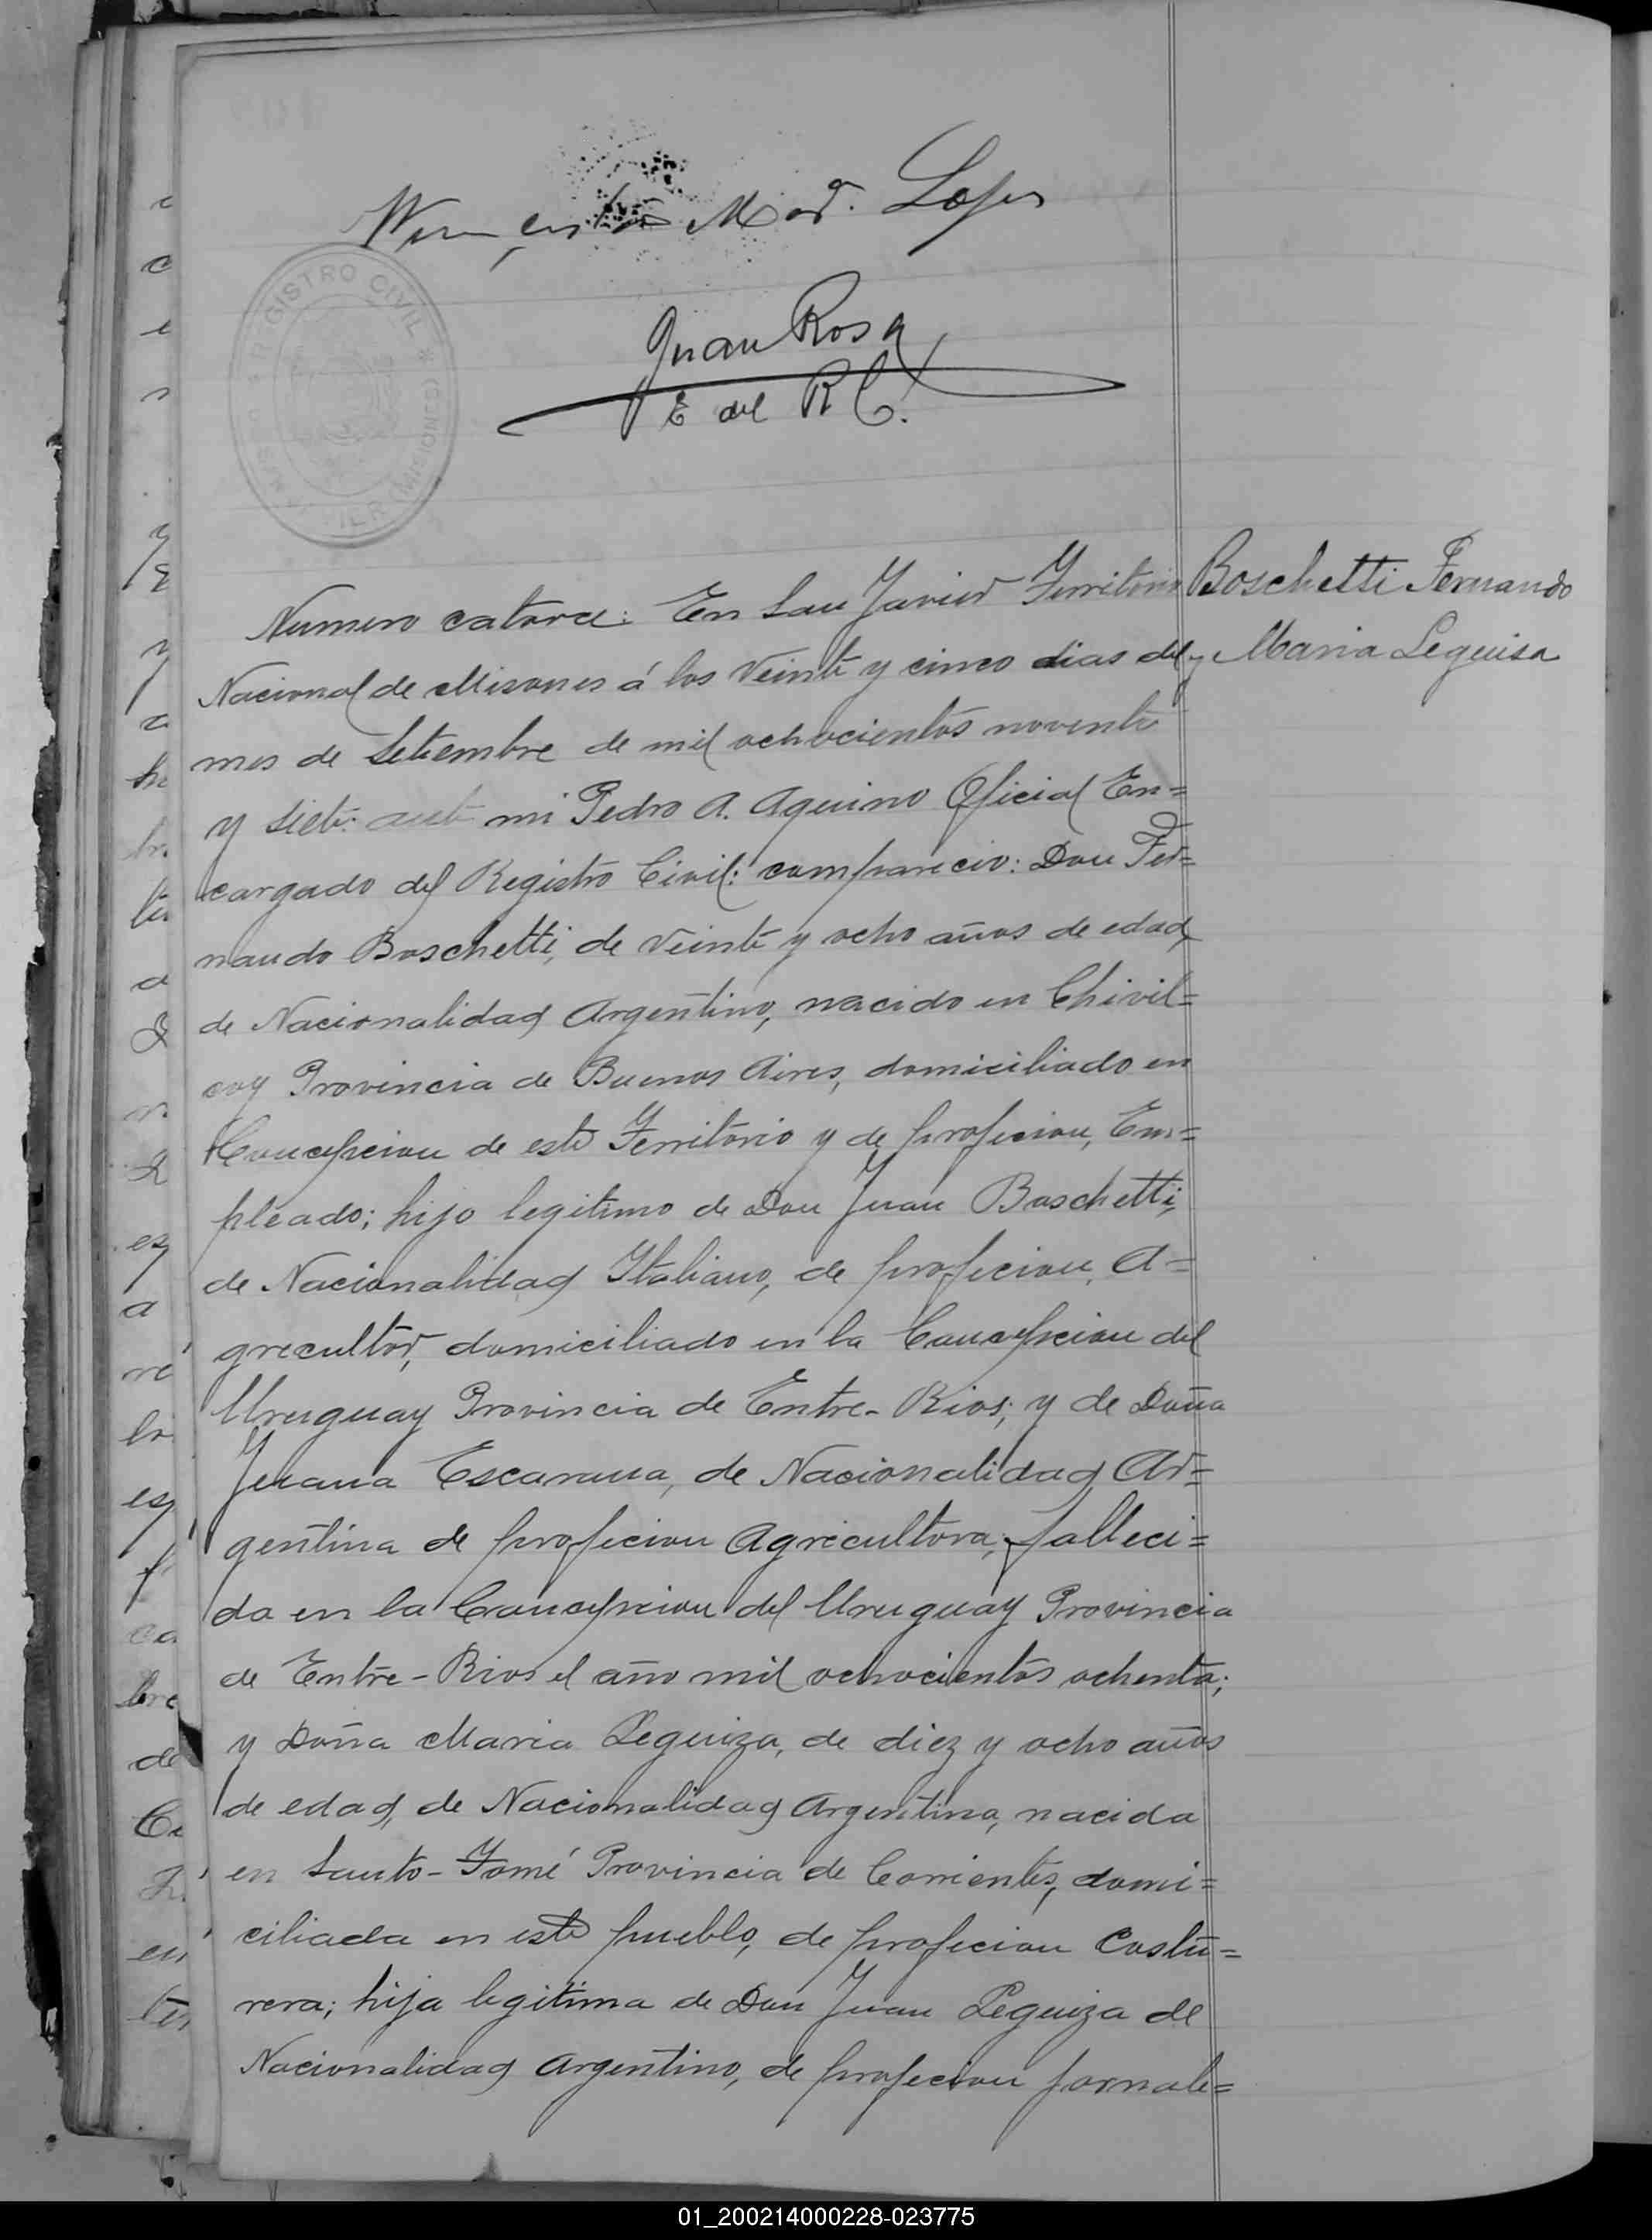 Mad. Lopes
REGISTRO CIVIL * (MISIONES)
Juan Rosa
E del R C.
Boschetti Fernando
y Maria Leguisa
Numero catorce: En San Javier Territorio
Nacional de Misiones á los Veinte y cinco dias del
mes de Setiembre de mil ochocientos noventa
y siete: ante mi Pedro A. Aquino Oficial En=
cargado del Registro Civil: comparecio: Don Fer=
nando Boschetti, de veinte y ocho años de edad,
de Nacionalidad Argentino, nacido en Chivil=
coy Provincia de Buenos Aires, domiciliado en
Concepcion de este Territorio y de profecion, Em=
pleado; hijo legitimo de Don Juan Boschetti,
de Nacionalidad Italiano, de profecion, A=
grecultor, domiciliado en la Concepcion del
Uruguay Provincia de Entre-Rios; y de Doña
Juana Escanua, de Nacionalidad Ar=
gentina de profecion Agricultora, falleci=
da en la Concepcion del Uruguay Provincia
de Entre-Rios el año mil ochocientos ochenta;
y Doña Maria Leguiza, de diez y ocho años
de edad, de Nacionalidad Argentina, nacida
en Santo-Tomé Provincia de Corrientes, domi=
ciliada en este pueblo, de profecion Costu=
rera; hija legitima de Don Juan Leguiza de
Nacionalidad Argentino, de profecion jornale=
01_200214000228-023775